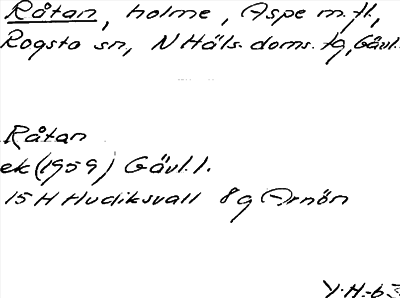 Råtan, holme, Aspe m.fl.,
Rogsta sn, N Häls. doms. tg, Gävl.
Råtan
ek (1959) Gävl. l.
15 H Hudiksvall 8 g Arnön
Y.H.-63